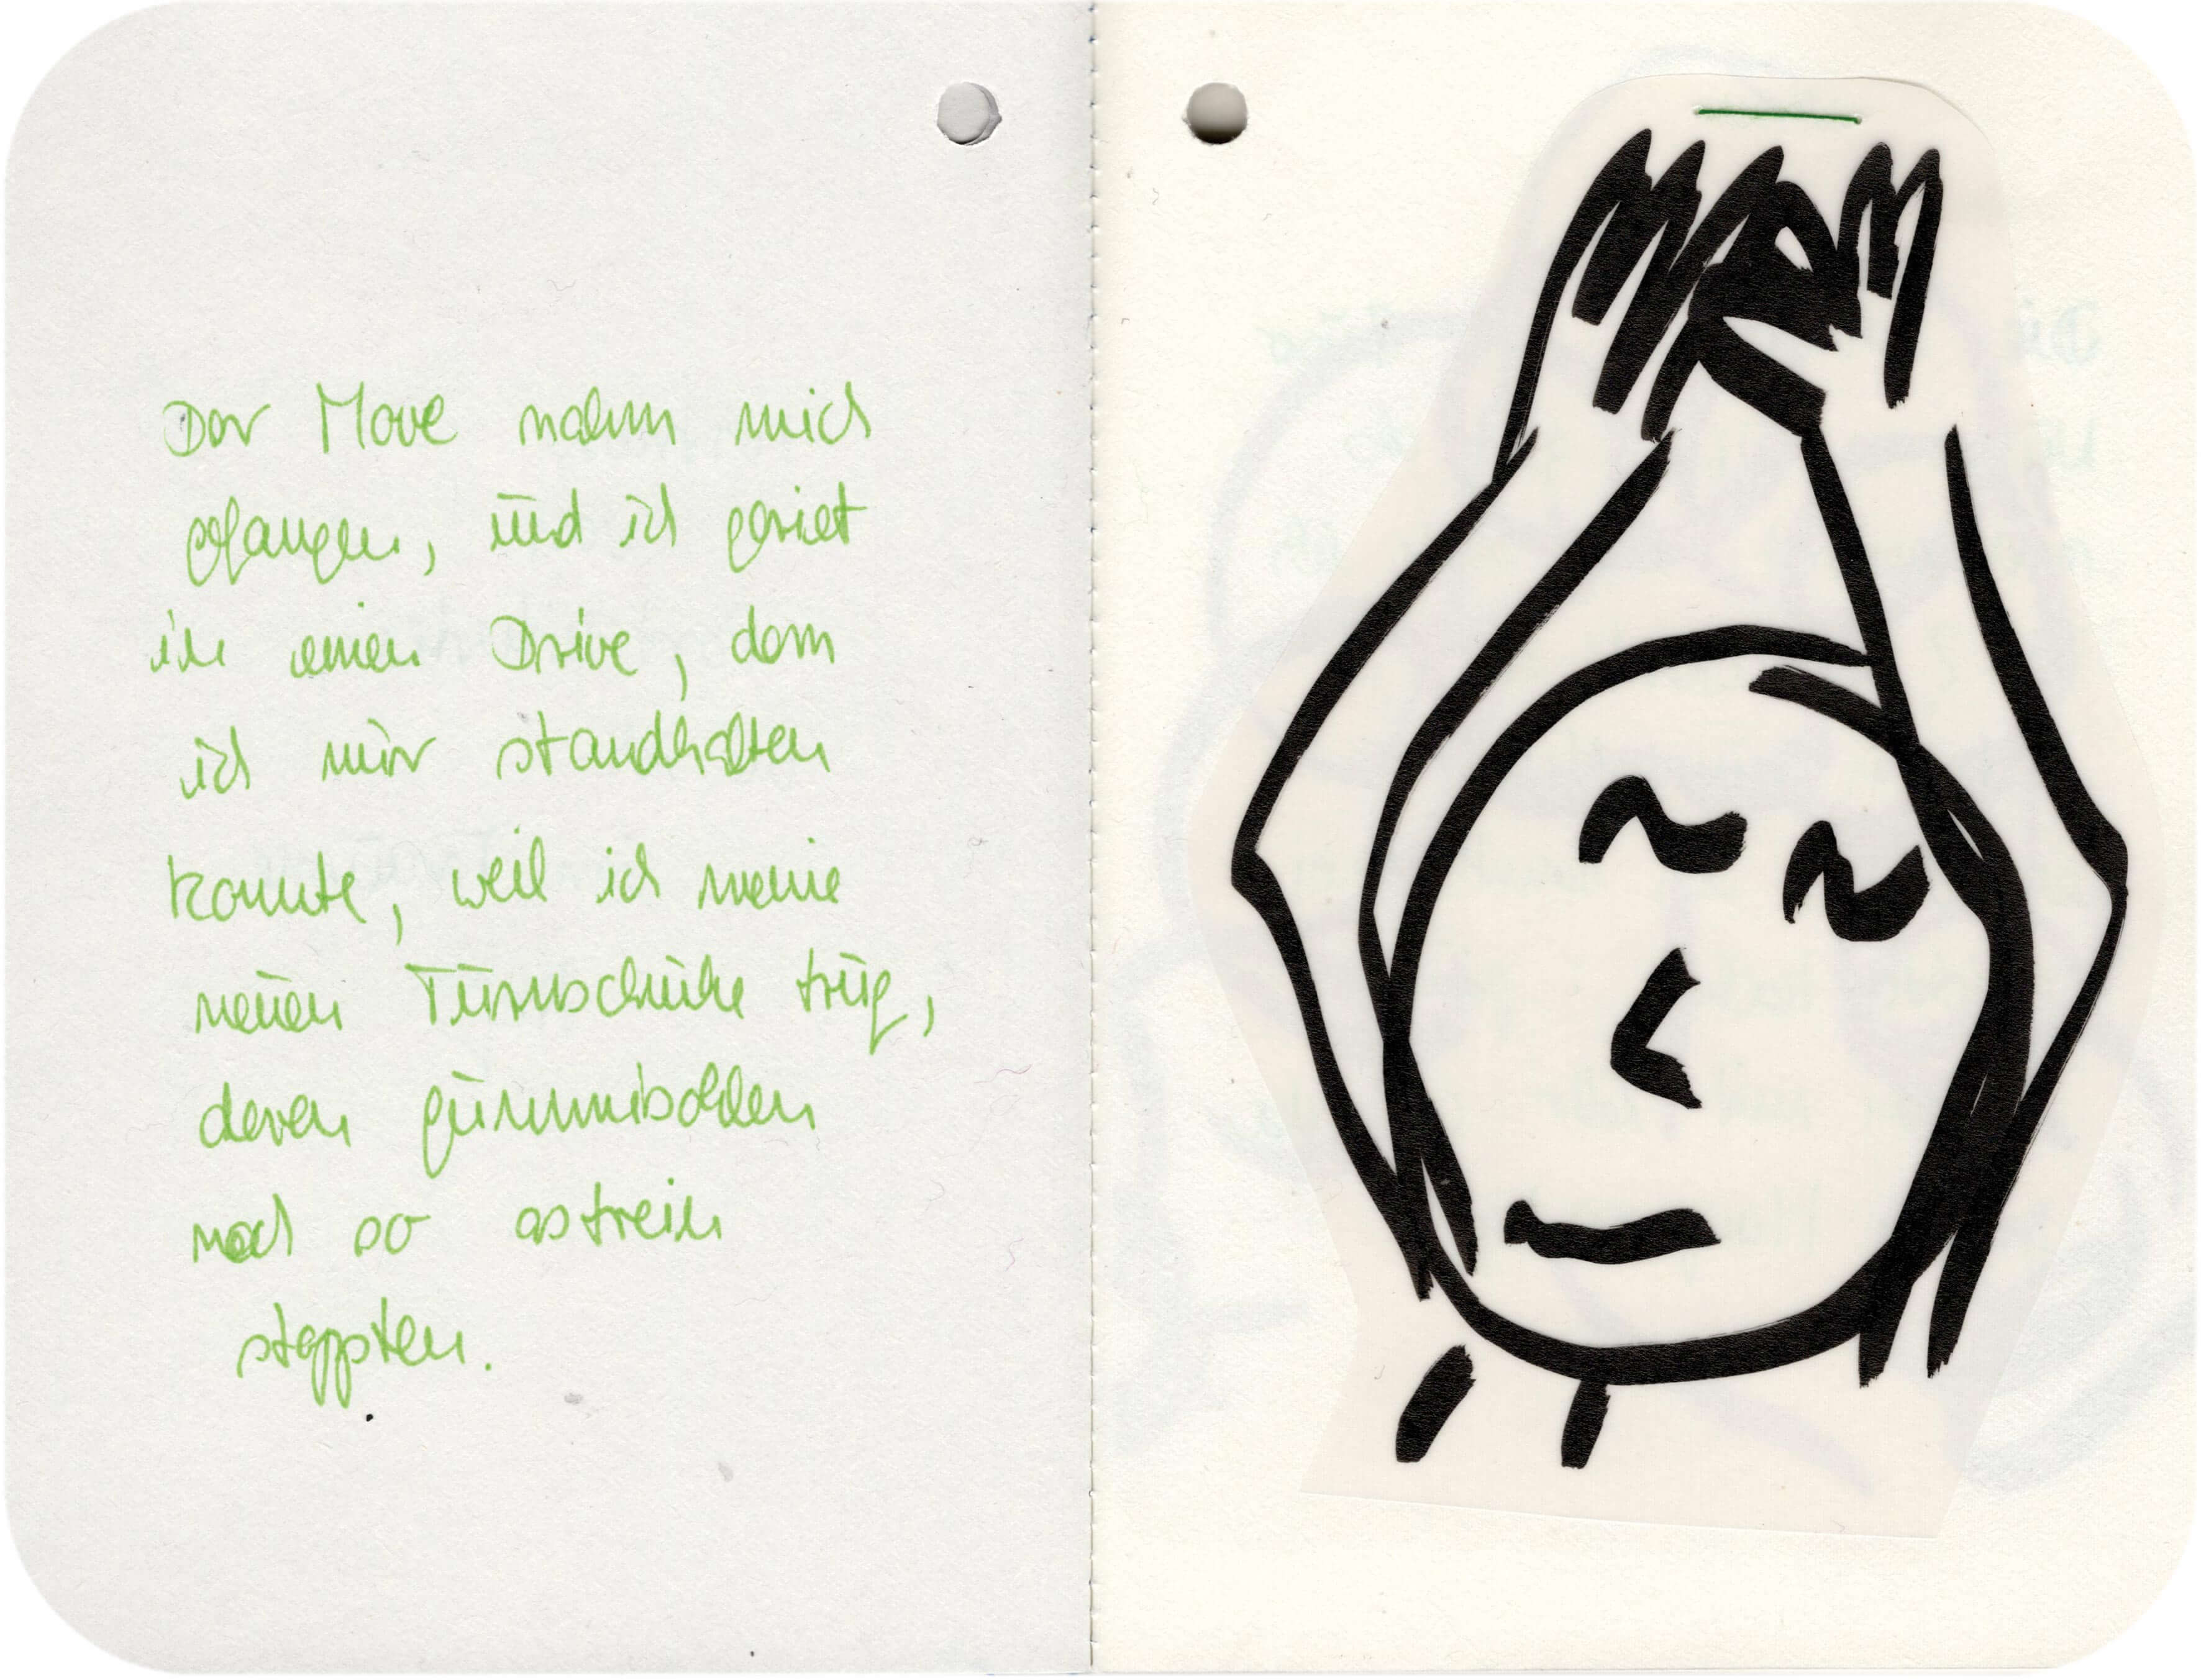 Der Move nahm mich
gefangen, und ich geriet
in einen Drive, dem
ich nur standhalten
konnte, weil ich meine
neuen Turnschuhe trug,
deren gummisohlen
noch so astrein
stoppten.